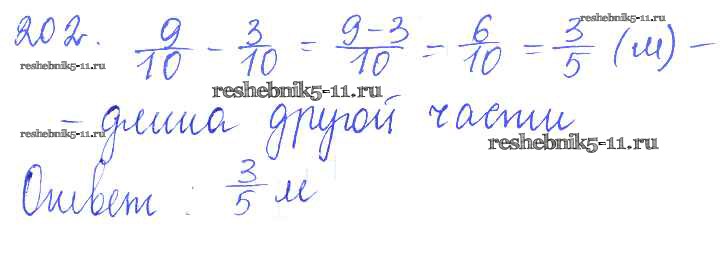 202. 9/10 - 3/10 = 9-3/10 = 6/10 = 3/5 (м) -
- длина другой части
Ответ: 3/5 м
reshebnik5-11.ru
reshebnik5-11.ru
reshebnik5-11.ru
reshebnik5-11.ru
reshebnik5-11.ru